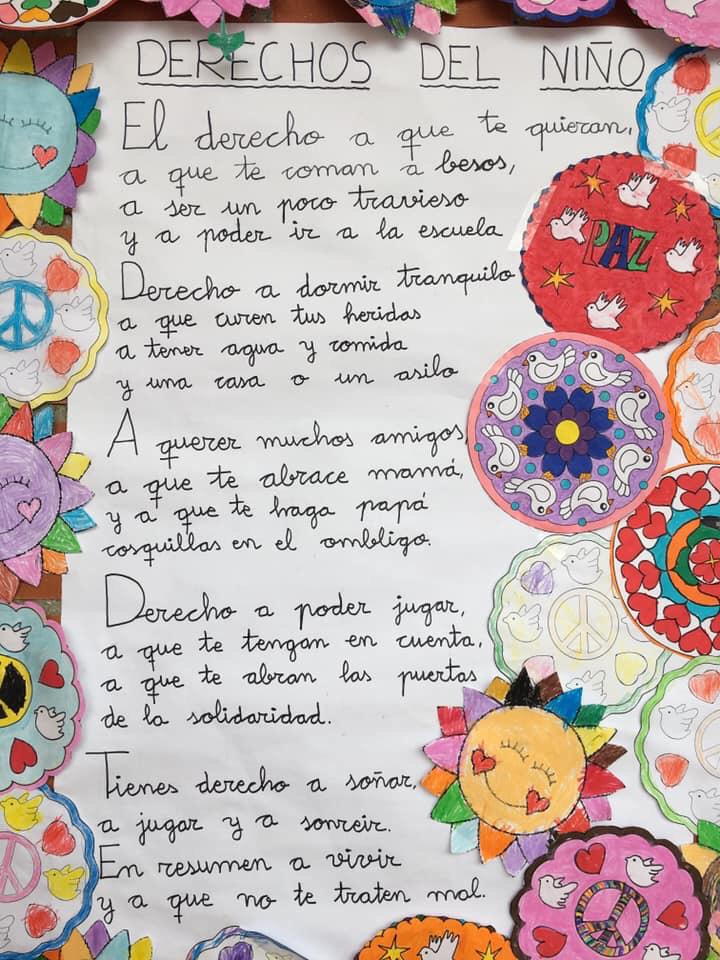 DERECHOS DEL NIÑO
El derecho a que te quieran,
a que te coman a besos,
a ser un poco travieso
y a poder ir a la escuela
PAZ
Derecho a dormir tranquilo
a que curen tus heridas
a tener agua y comida
y una casa o un asilo
A querer muchos amigos,
a que te abrace mamá,
y a que te haga papá
cosquillas en el ombligo.
Derecho a poder jugar,
a que te tengan en cuenta,
a que te abran las puertas
de la solidaridad.
Tienes derecho a soñar,
a jugar y a sonreir.
En resumen a vivir
y a que no te traten mal.